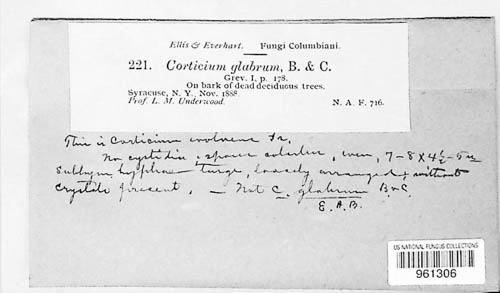 Ellis & Everhart. Fungi Columbiani.
221. Corticium glabrum, B. & C.
Grev. I, p. 178.
On bark of dead deciduous trees.
Syracuse, N. Y., Nov. 1888.
Prof. L. M. Underwood. N. A. F. 716.
This is Corticium evolvens Fr.
No cystidia, spores colorless, even, 7–8 X 4½–5
Subhym. hyphae large, loosely arranged & without
crystals present. — Not C. glabrum B & C.
E. A. B.
US NATIONAL FUNGUS COLLECTIONS
961306